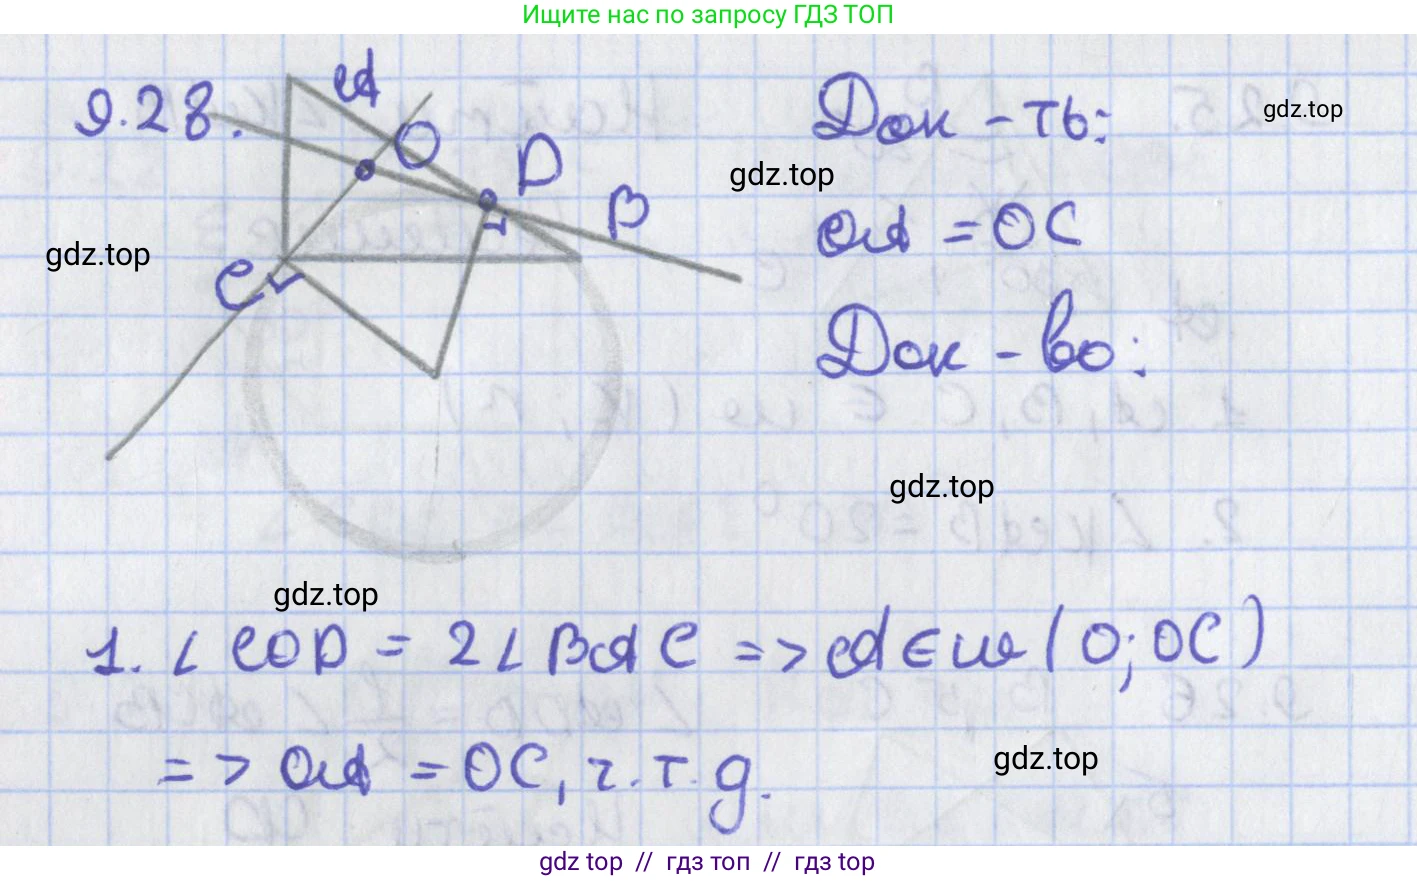 Ищите нас по запросу ГДЗ ТОП
9.28.
A
O
D
B
C
Док-ть:
gdz.top
gdz.top
OA = OC
gdz.top
Док-во:
gdz.top
gdz.top
1. ∠COD = 2∠BAC => A ∈ ω(O; OC)
=> OA = OC, ч.т.д.
gdz.top
gdz top // гдз топ // гдз top